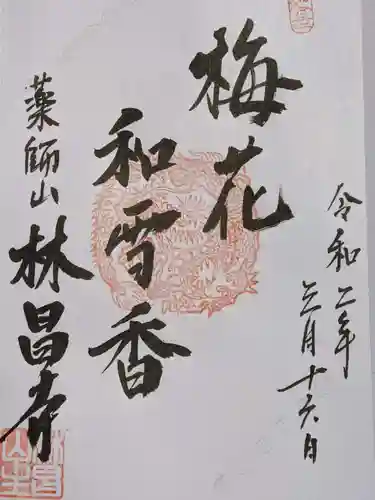 令和二年
三月十六日
梅花
和雪香
薬師山
林昌寺